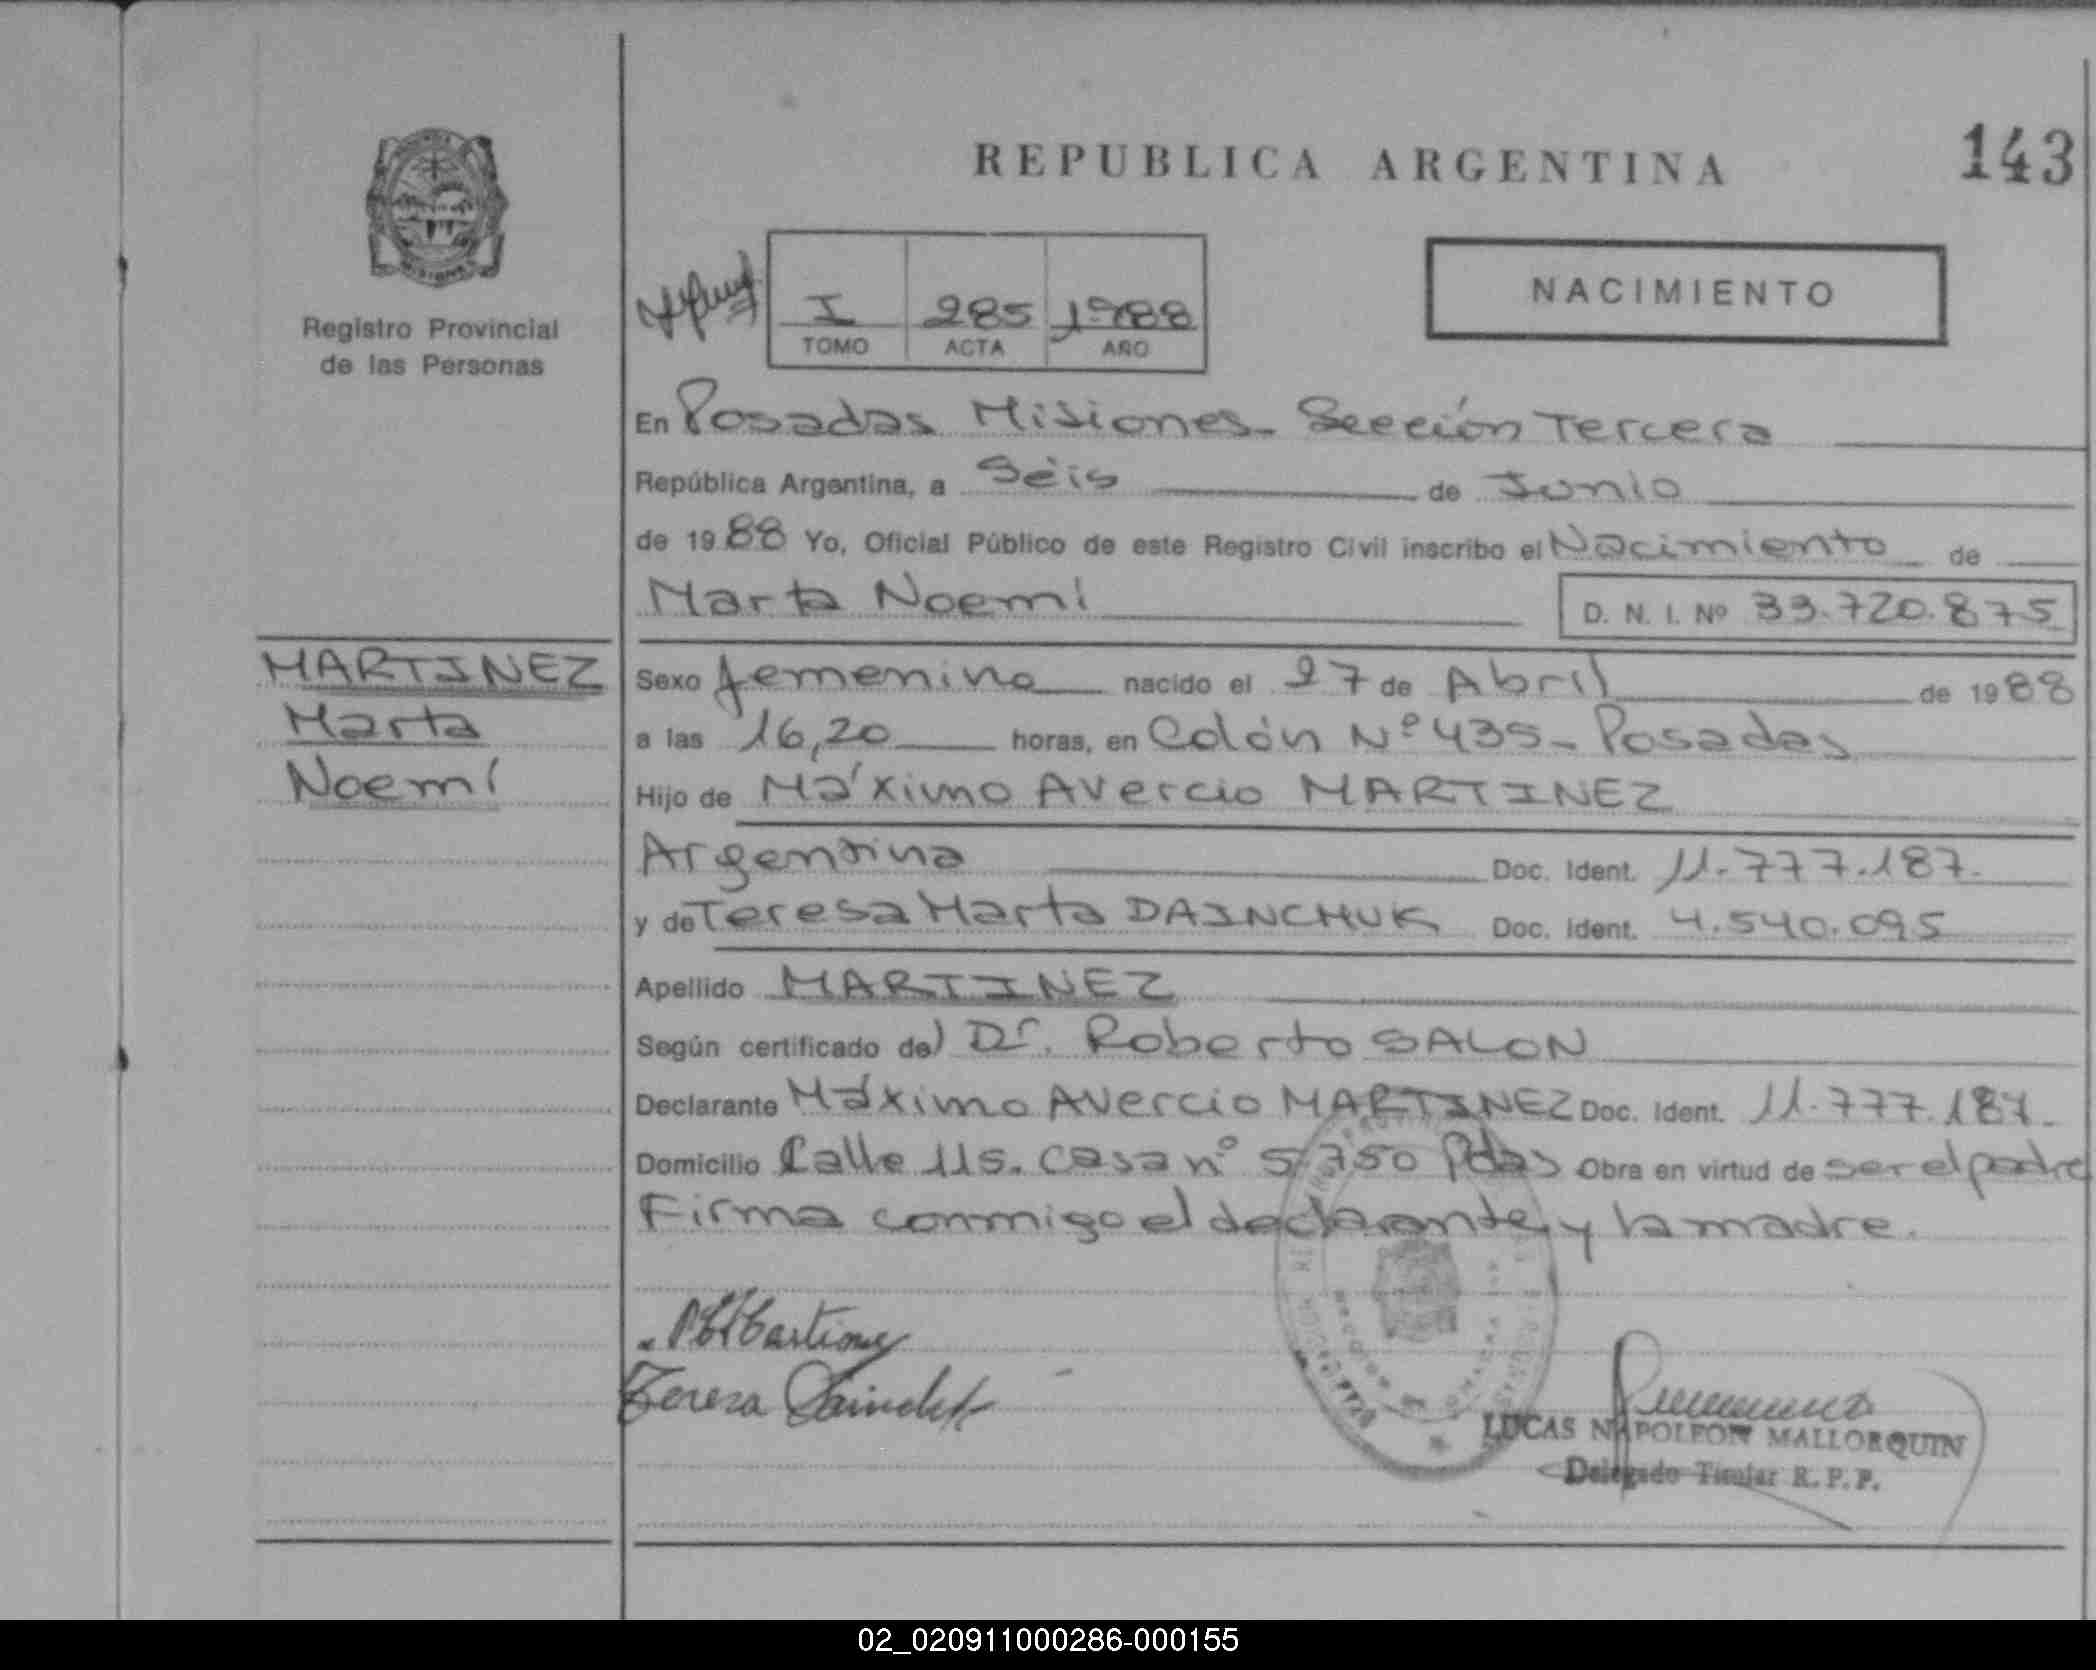 REPUBLICA ARGENTINA
143
Registro Provincial
de las Personas
I 285 1988
TOMO ACTA AÑO
NACIMIENTO
En Posadas Misiones - Sección Tercera
República Argentina, a Séis de Junio
de 1988 Yo, Oficial Público de este Registro Civil inscribo el Nacimiento de
Marta Noemí
D. N. I. Nº 33.720.875
MARTINEZ
Marta
Noemí
Sexo femenino nacido el 27 de Abril de 1988
a las 16,20 horas, en Colón Nº 435 - Posadas
Hijo de Máximo Avercio MARTINEZ
Argentina Doc. Ident. 11.777.187.
y de Teresa Marta DAINCHUK Doc. Ident. 4.540.095
Apellido MARTINEZ
Según certificado del Dr. Roberto SALON
Declarante Máximo Avercio MARTINEZ Doc. Ident. 11.777.187.
Domicilio Calle 115. casa nº 5750 Pdas Obra en virtud de ser el padre
Firma conmigo el declarante y la madre.
Tereza
LUCAS NAPOLEON MALLORQUIN
Delegado Titular R. P. P.
02_020911000286-000155